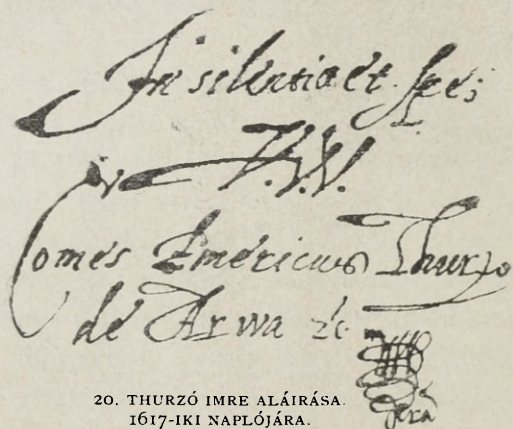 In silentio et spe;
Comes Emericus Thurzo
de Arwa etc
20. THURZÓ IMRE ALÁIRÁSA.
1617-IKI NAPLÓJÁRA.